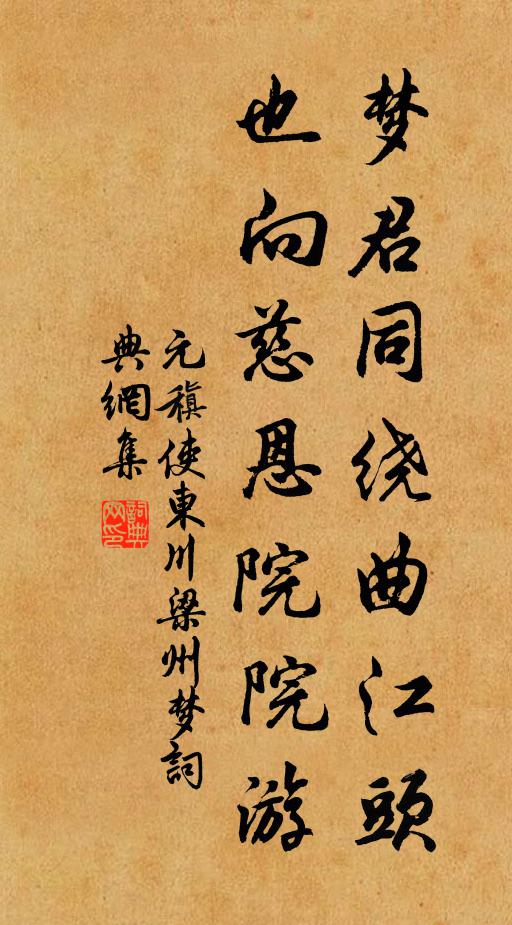 梦君同绕曲江头
也向慈恩院院游
元稹使東川梁州梦詞
典網集
詞典网印